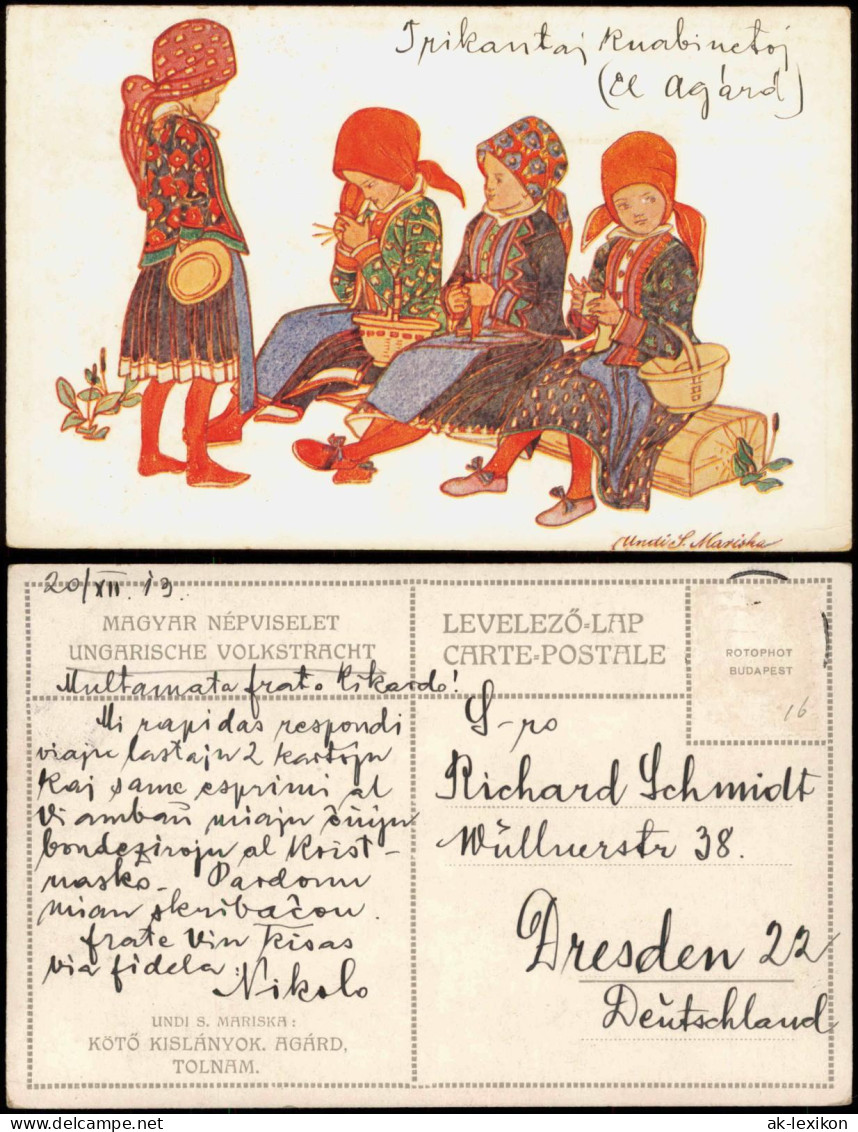 Trikantaj knabinetoj
(el Agárd)
Undi S. Mariska
20/XII. 19.
MAGYAR NÉPVISELET
UNGARISCHE VOLKSTRACHT
LEVELEZŐ=LAP
CARTE=POSTALE
ROTOPHOT
BUDAPEST
16
Multamata frato Rikardo!
Mi rapidas respondi
viajn lastajn 2 kartojn
kaj same esprimi al
Vi ambaŭ miajn ĉiujn
bondezirojn al Krist-
nasko. Pardonu
mian skribaĉon.
frate Vin kisas
via fidela:
Nikolo
S-ro
Richard Schmidt
Wüllnerstr 38.
Dresden 22
Deŭtschland
UNDI S. MARISKA:
KÖTŐ KISLÁNYOK. AGÁRD,
TOLNAM.
www.delcampe.net
ak-lexikon